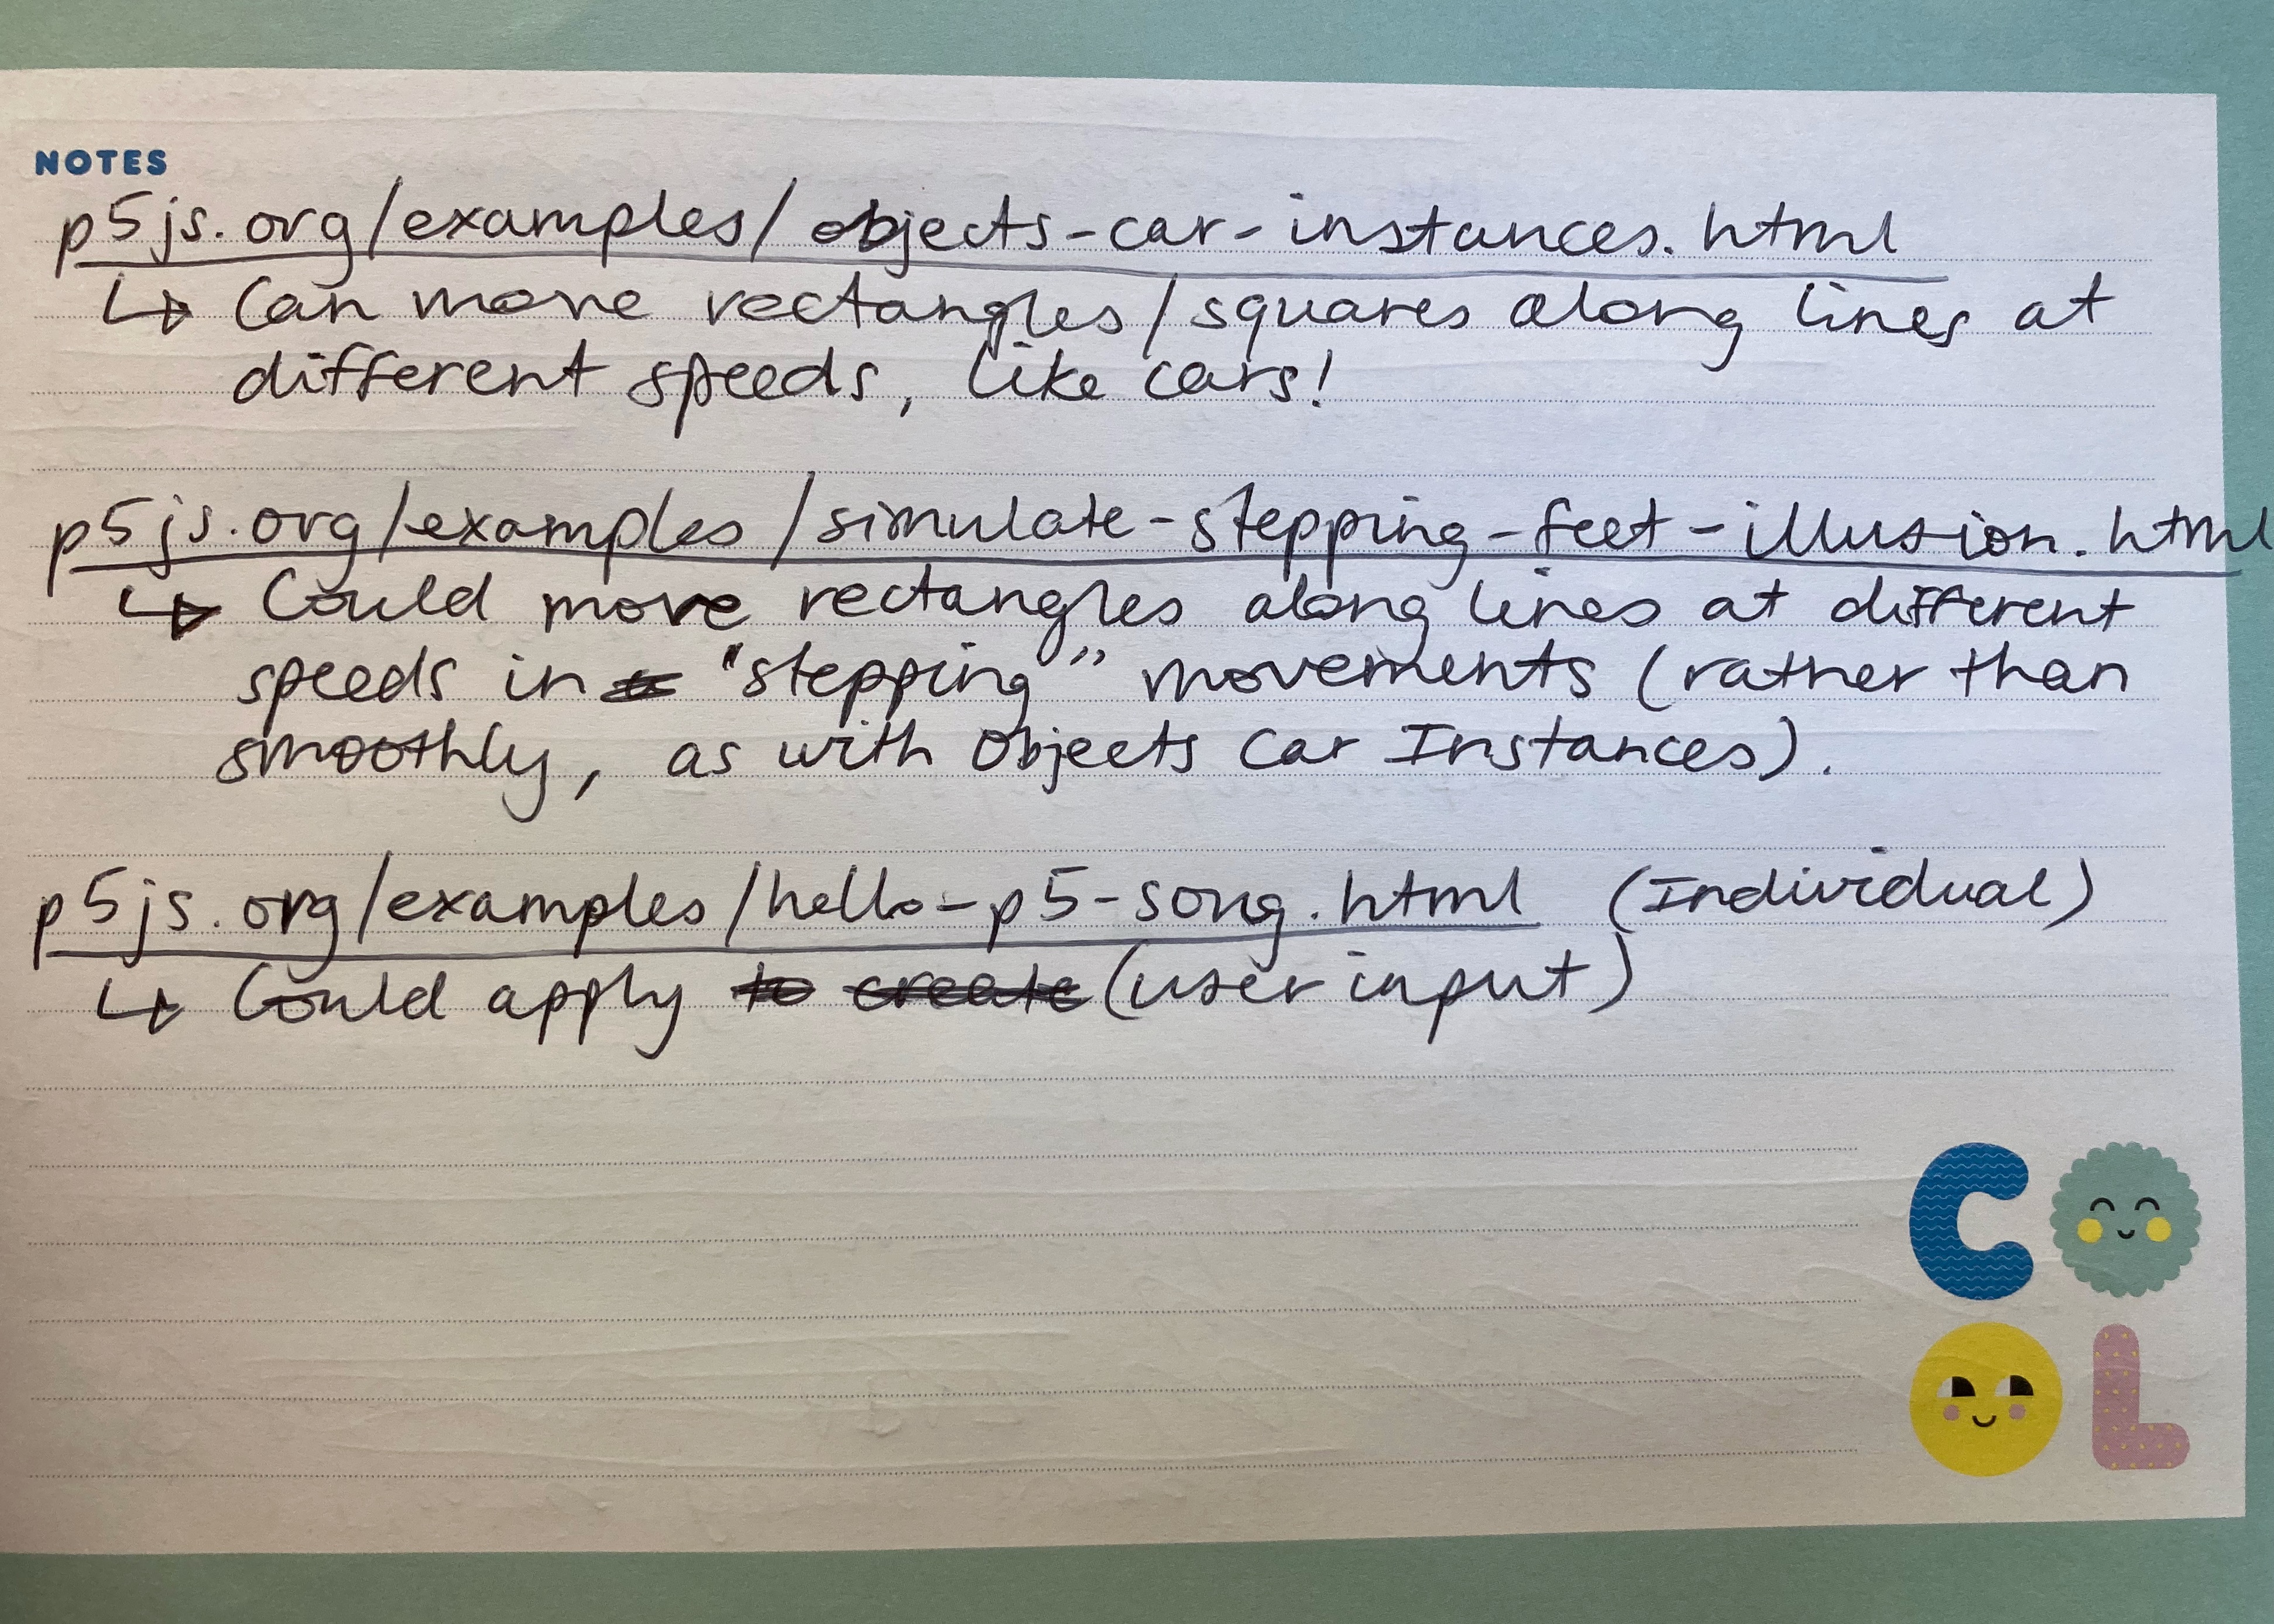 NOTES
p5js.org/examples/objects-car-instances.html
↳ Can move rectangles/squares along lines at
different speeds, like cars!
p5js.org/examples/simulate-stepping-feet-illusion.html
↳ Could move rectangles along lines at different
speeds in "stepping" movements (rather than
smoothly, as with Objects Car Instances).
p5js.org/examples/hello-p5-song.html (Individual)
↳ Could apply to create (user input)
C
L